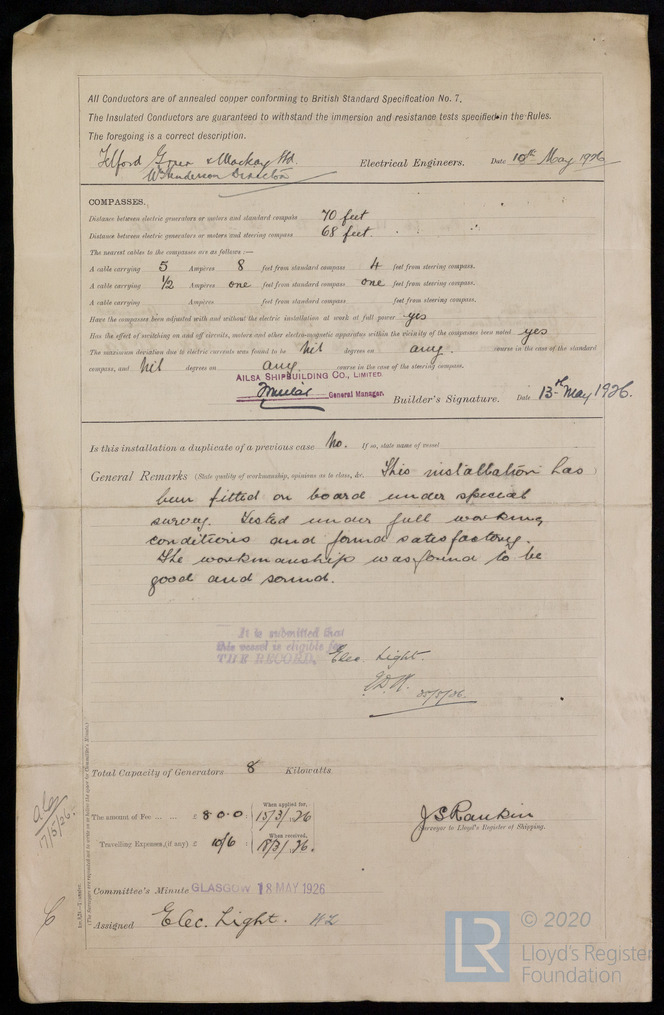 All Conductors are of annealed copper conforming to British Standard Specification No. 7.
The Insulated Conductors are guaranteed to withstand the immersion and resistance tests specified in the Rules.
The foregoing is a correct description.
Telford Grier & Mackay Ltd. Electrical Engineers. Date 10th May 1926
W Henderson Director
COMPASSES.
Distance between electric generators or motors and standard compass 70 feet
Distance between electric generators or motors and steering compass 68 feet.
The nearest cables to the compasses are as follows :—
A cable carrying 5 Ampères 8 feet from standard compass 4 feet from steering compass.
A cable carrying 1/2 Ampères one feet from standard compass one feet from steering compass.
A cable carrying Ampères feet from standard compass feet from steering compass.
Have the compasses been adjusted with and without the electric installation at work at full power yes
Has the effect of switching on and off circuits, motors and other electro-magnetic apparatus within the vicinity of the compasses been noted yes
The maximum deviation due to electric currents was found to be Nil degrees on any. course in the case of the standard
compass, and Nil degrees on any course in the case of the steering compass.
AILSA SHIPBUILDING CO., LIMITED
General Manager. Builder's Signature. Date 13th May 1926.
Is this installation a duplicate of a previous case No. If so, state name of vessel
General Remarks (State quality of workmanship, opinions as to class, &c. This installation has
been fitted on board under special
survey. Tested under full working
conditions and found satisfactory.
The workmanship was found to be
good and sound.
It is submitted that
this vessel is eligible for
THE RECORD. Elec. Light.
25/5/26.
Total Capacity of Generators 8 Kilowatts
The amount of Fee ... ... £ 8 0 0 : When applied for, 15/3/26
Travelling Expenses, (if any) £ 10/6 : When received, 18/3/26.
J S Rankin
Surveyor to Lloyd's Register of Shipping.
17/5/26.
Committee's Minute GLASGOW 18 MAY 1926
Assigned Elec. Light.
LR © 2020
Lloyd's Register
Foundation